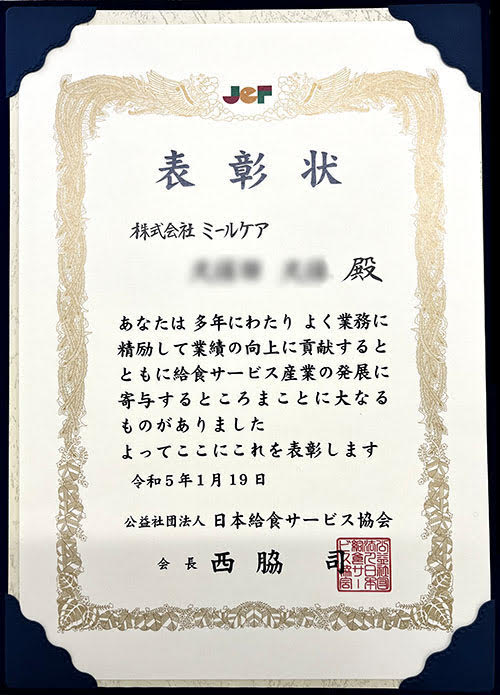 JeF
表彰状
株式会社 ミールケア
殿
あなたは 多年にわたり よく業務に
精励して業績の向上に貢献すると
ともに給食サービス産業の発展に
寄与するところまことに大なる
ものがありました
よってここにこれを表彰します
令和5年1月19日
公益社団法人 日本給食サービス協会
会長 西脇 司